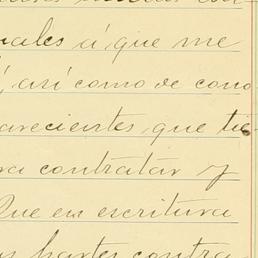 uales á que me
í, así como de cono
arecientes que tie
ra contratar y
Que en escritura
as partes contra